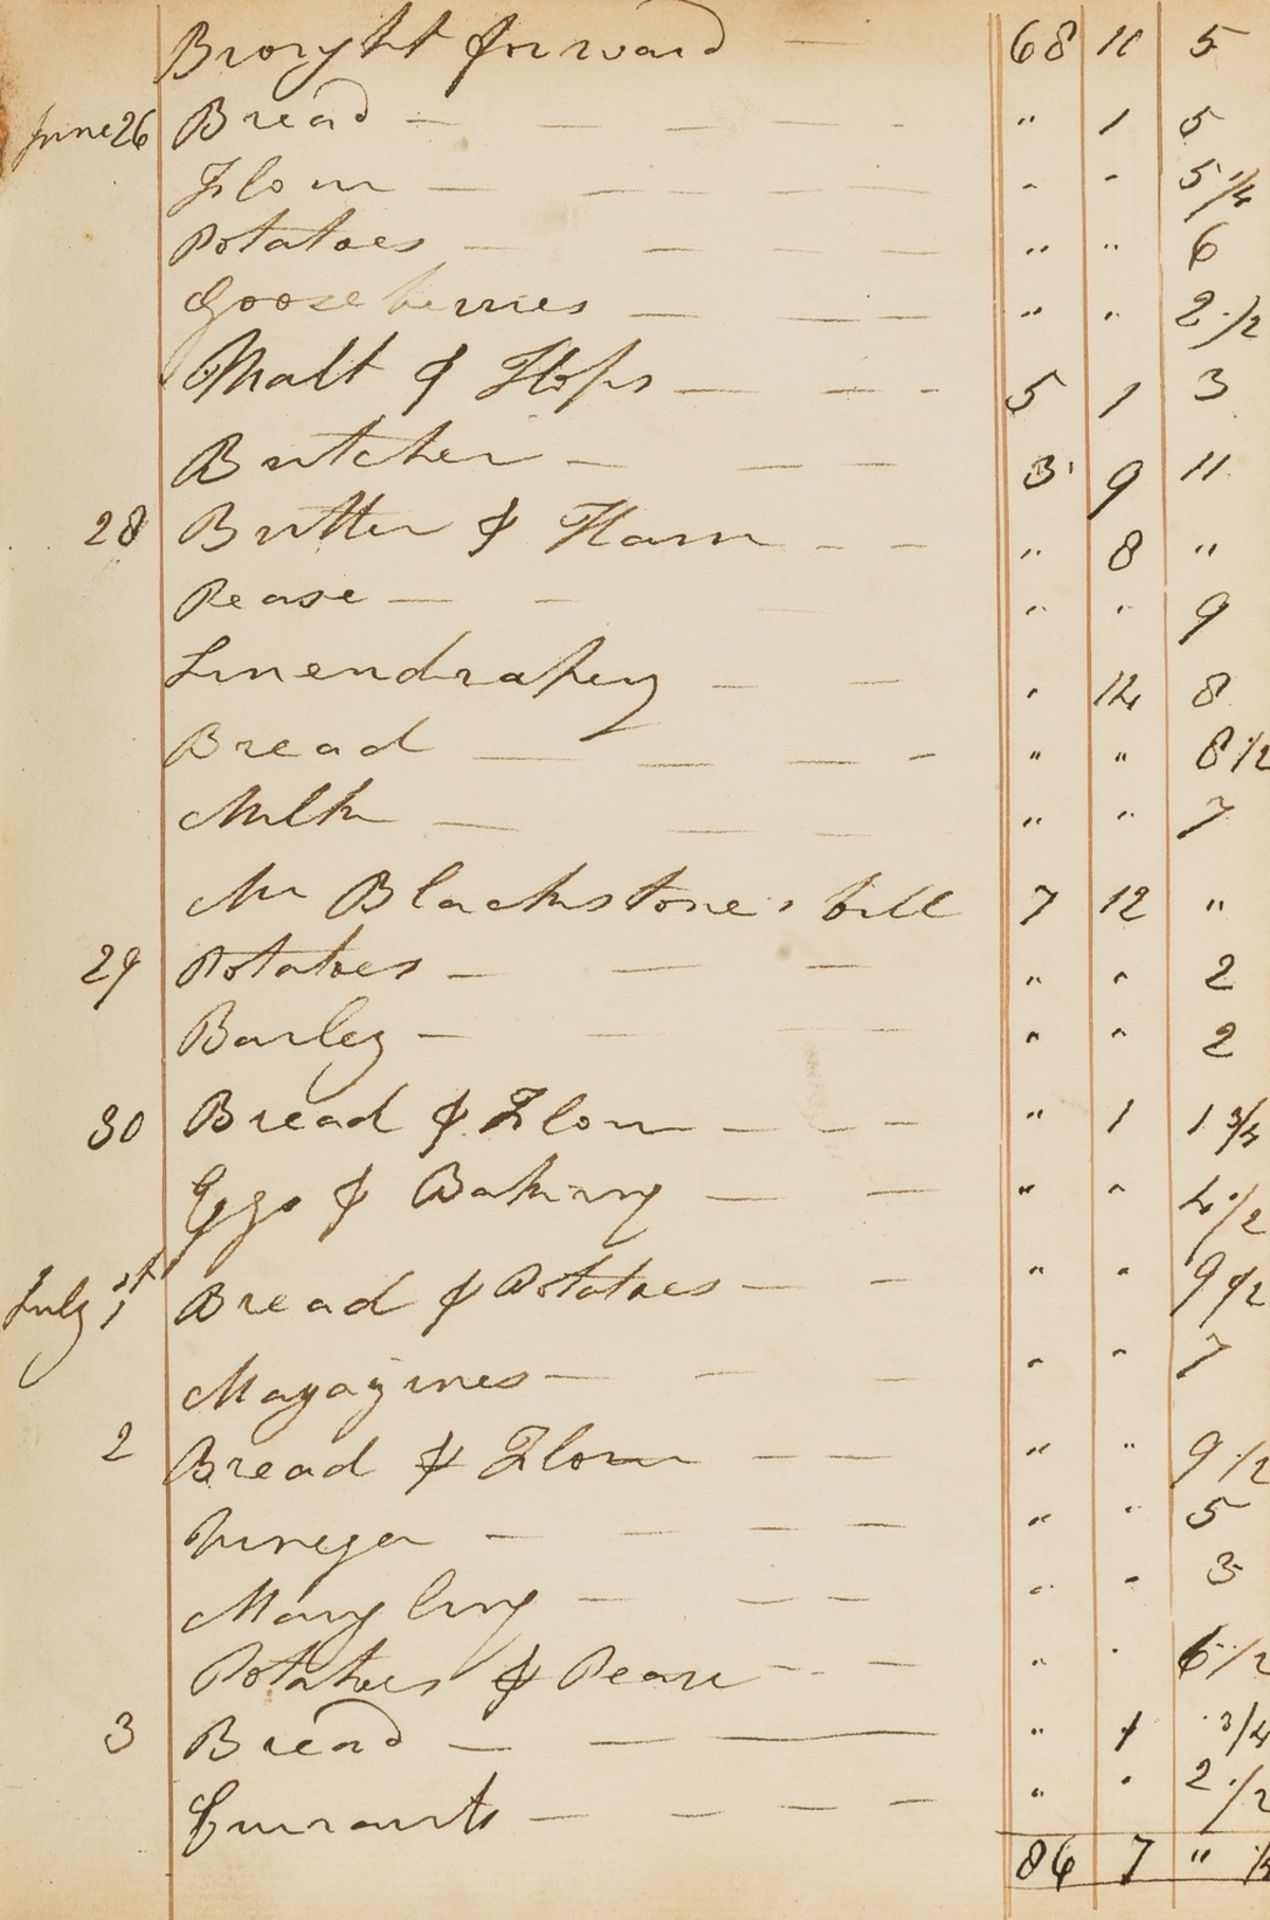 Brought forward — 68 11 5
June 26 Bread — — — — - " 1 5
Flour — — — — — " " 5 1/4
Potatoes — — — — " " 6
Gooseberries — — — " " 2 1/2
Malt & Hops — — - 5 1 3
Butcher — — — 3 9 11
28 Butter & Ham - — " 8 "
Pease — — — " " 9
Linendrapery — — " 14 8
Bread — — — - " " 8 1/2
Milk — — — " " 7
Mr Blackstone's bill 7 12 "
29 Potatoes — — — " " 2
Barley — — — " " 2
30 Bread & Flour — - — " 1 1 3/4
Eggs & Baking — — " " 4 1/2
July 1st Bread & Potatoes — — " " 9 1/2
Magazines — — — " " 7
2 Bread & Flour — — " " 9 1/2
Vinegar — — — — " " 5
Mangling — — — " " 3
Potatoes & Pease - - — " " 6 1/2
3 Bread — — — " 1 " 3/4
Currants — — — — " " 2 1/2
86 7 " 1/4